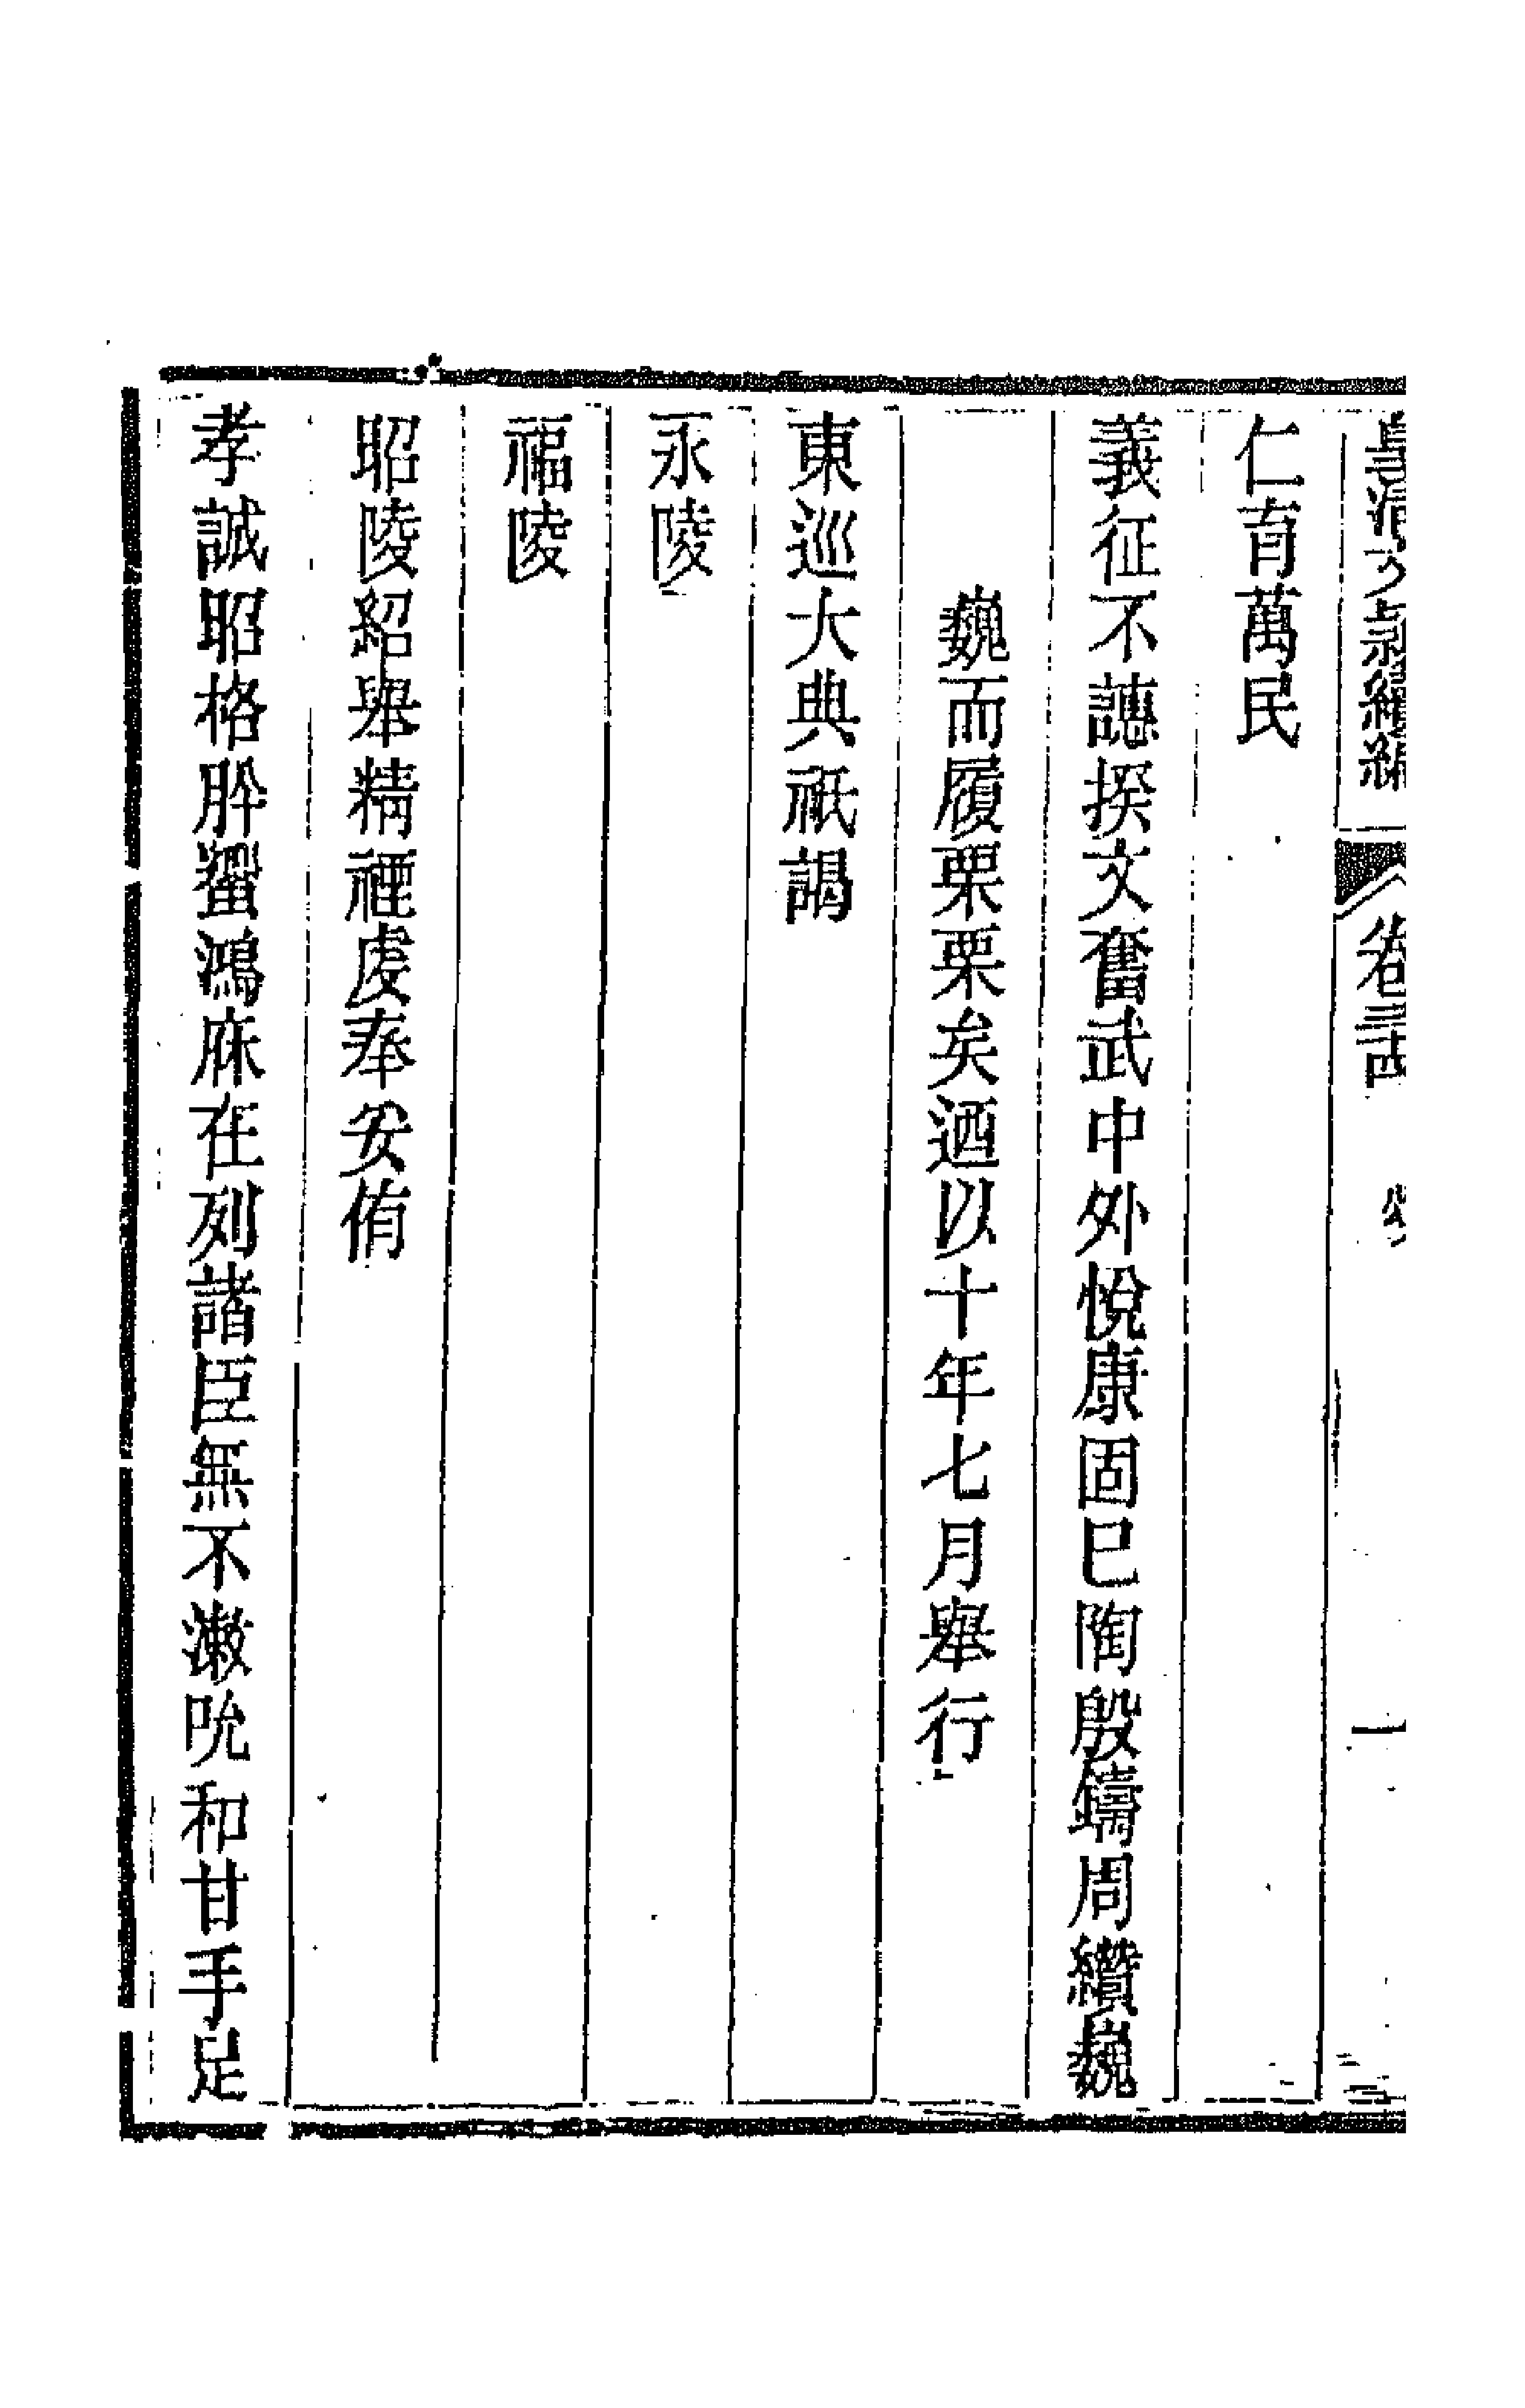 皇清文穎續編 卷三 頌 一
仁育萬民
義征不譓揆文奮武中外悅康固巳陶殷鑄周纘巍
巍而履栗栗矣迺以十年七月舉行
東巡大典祇謁
永陵
福陵
昭陵紹舉精禋虔奉安侑
孝誠昭格肸蠁鴻庥在列諸臣無不漱吮和甘手足